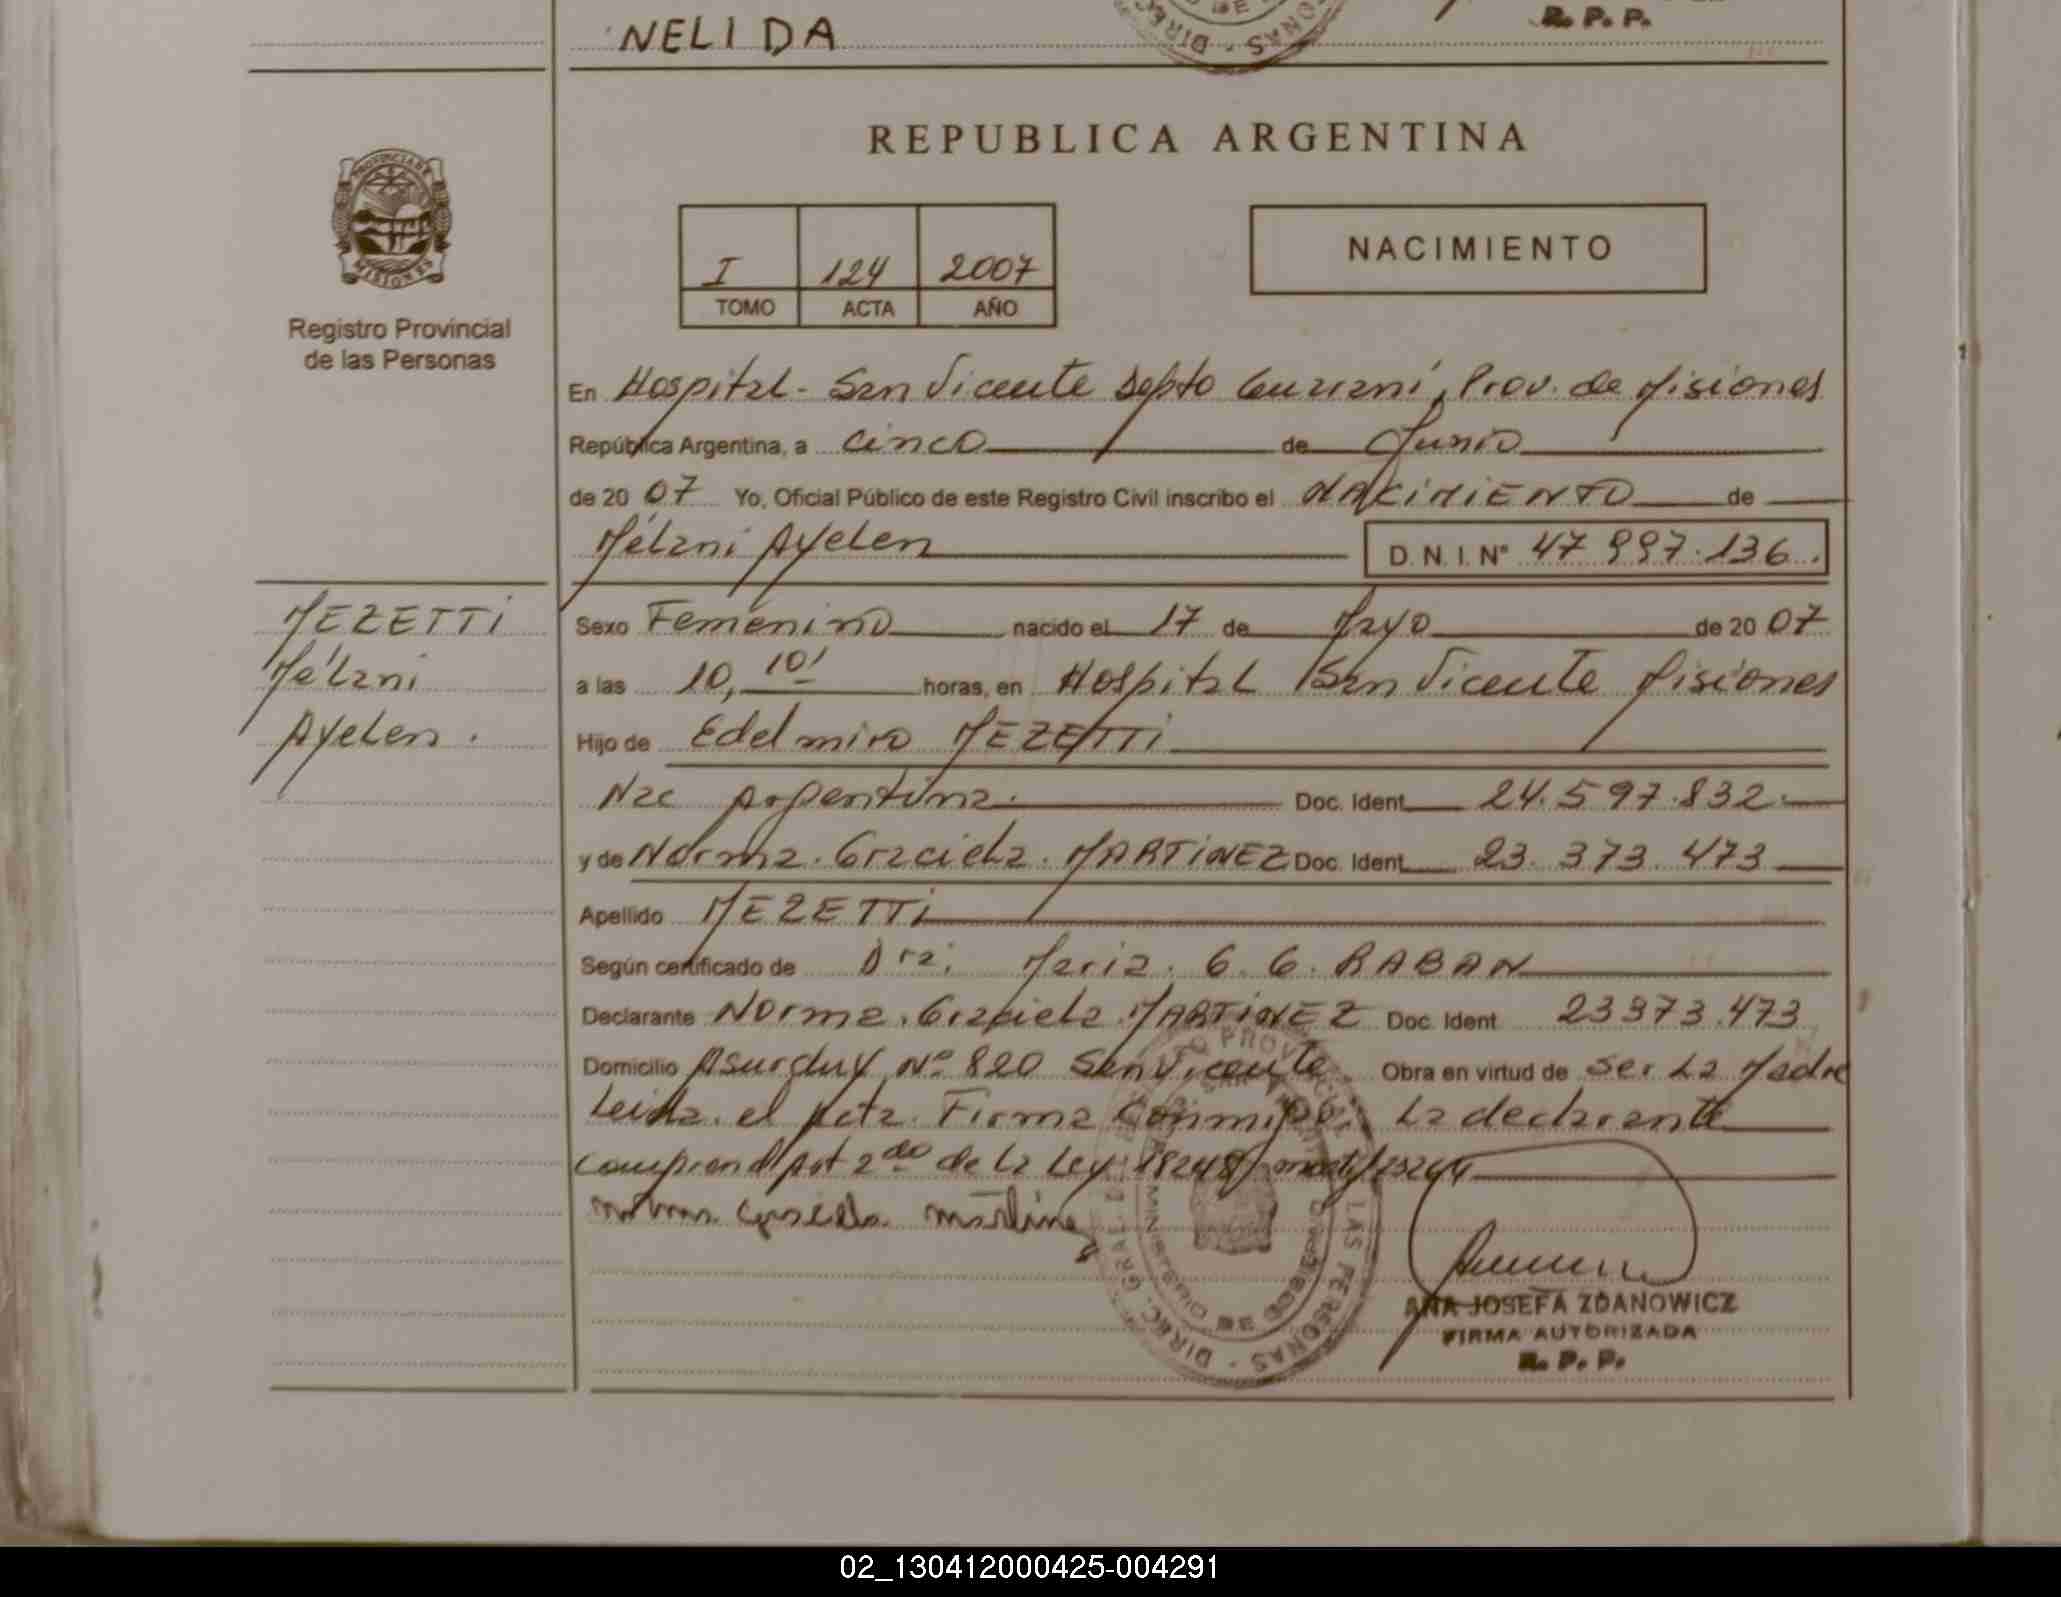 NELIDA
R. P. P.
REPUBLICA ARGENTINA
PROVINCIA DE
MISIONES
Registro Provincial
de las Personas
I 124 2007
TOMO ACTA AÑO
NACIMIENTO
En Hospital - San Vicente Depto Guarani, Prov. de Misiones
República Argentina, a cinco de Junio
de 20 07 Yo, Oficial Público de este Registro Civil inscribo el NACIMIENTO de
Mélani Ayelen D. N. I. Nº 47 997.136.
MEZETTI
Mélani
Ayelen.
Sexo Femenino nacido el 17 de Mayo de 20 07
a las 10, 10' horas, en Hospital San Vicente Misiones
Hijo de Edelmiro MEZETTI
Nac Argentina. Doc. Ident. 24.597.832.
y de Norma. Graciela. MARTINEZ Doc. Ident. 23. 373. 473
Apellido MEZETTI
Según certificado de Dra: Maria. G. G. RABAN
Declarante Norma. Graciela. MARTINEZ Doc. Ident 23373.473
Domicilio Asurduy Nº 820 San Vicente Obra en virtud de Ser La Madre
Leida. el Acta. Firma Conmigo. La declarante
Comprend Art 2do de la Ley 18248/modif/23264
ANA JOSEFA ZDANOWICZ
FIRMA AUTORIZADA
R. P. P.
02_130412000425-004291